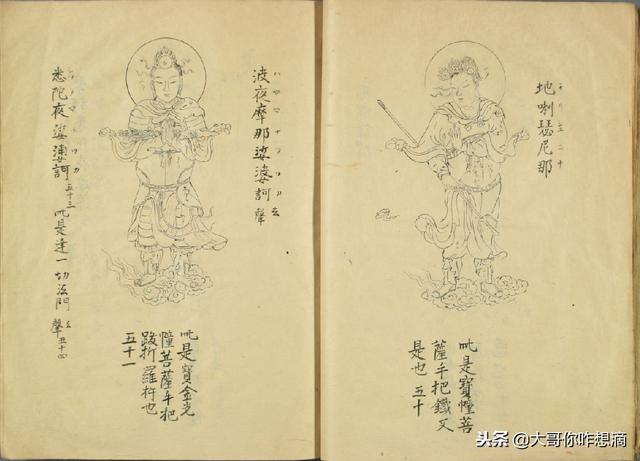 地唎瑟尼那
此是寶幢菩
薩手把鐵叉
是也 五十
波夜摩那娑婆訶 聲
此是寶金光
幢菩薩手把
跋折羅杵也
五十一
悉陀夜娑婆訶 五十三 此是達一切法門 聲 五十四
头条 @大哥你咋想滴